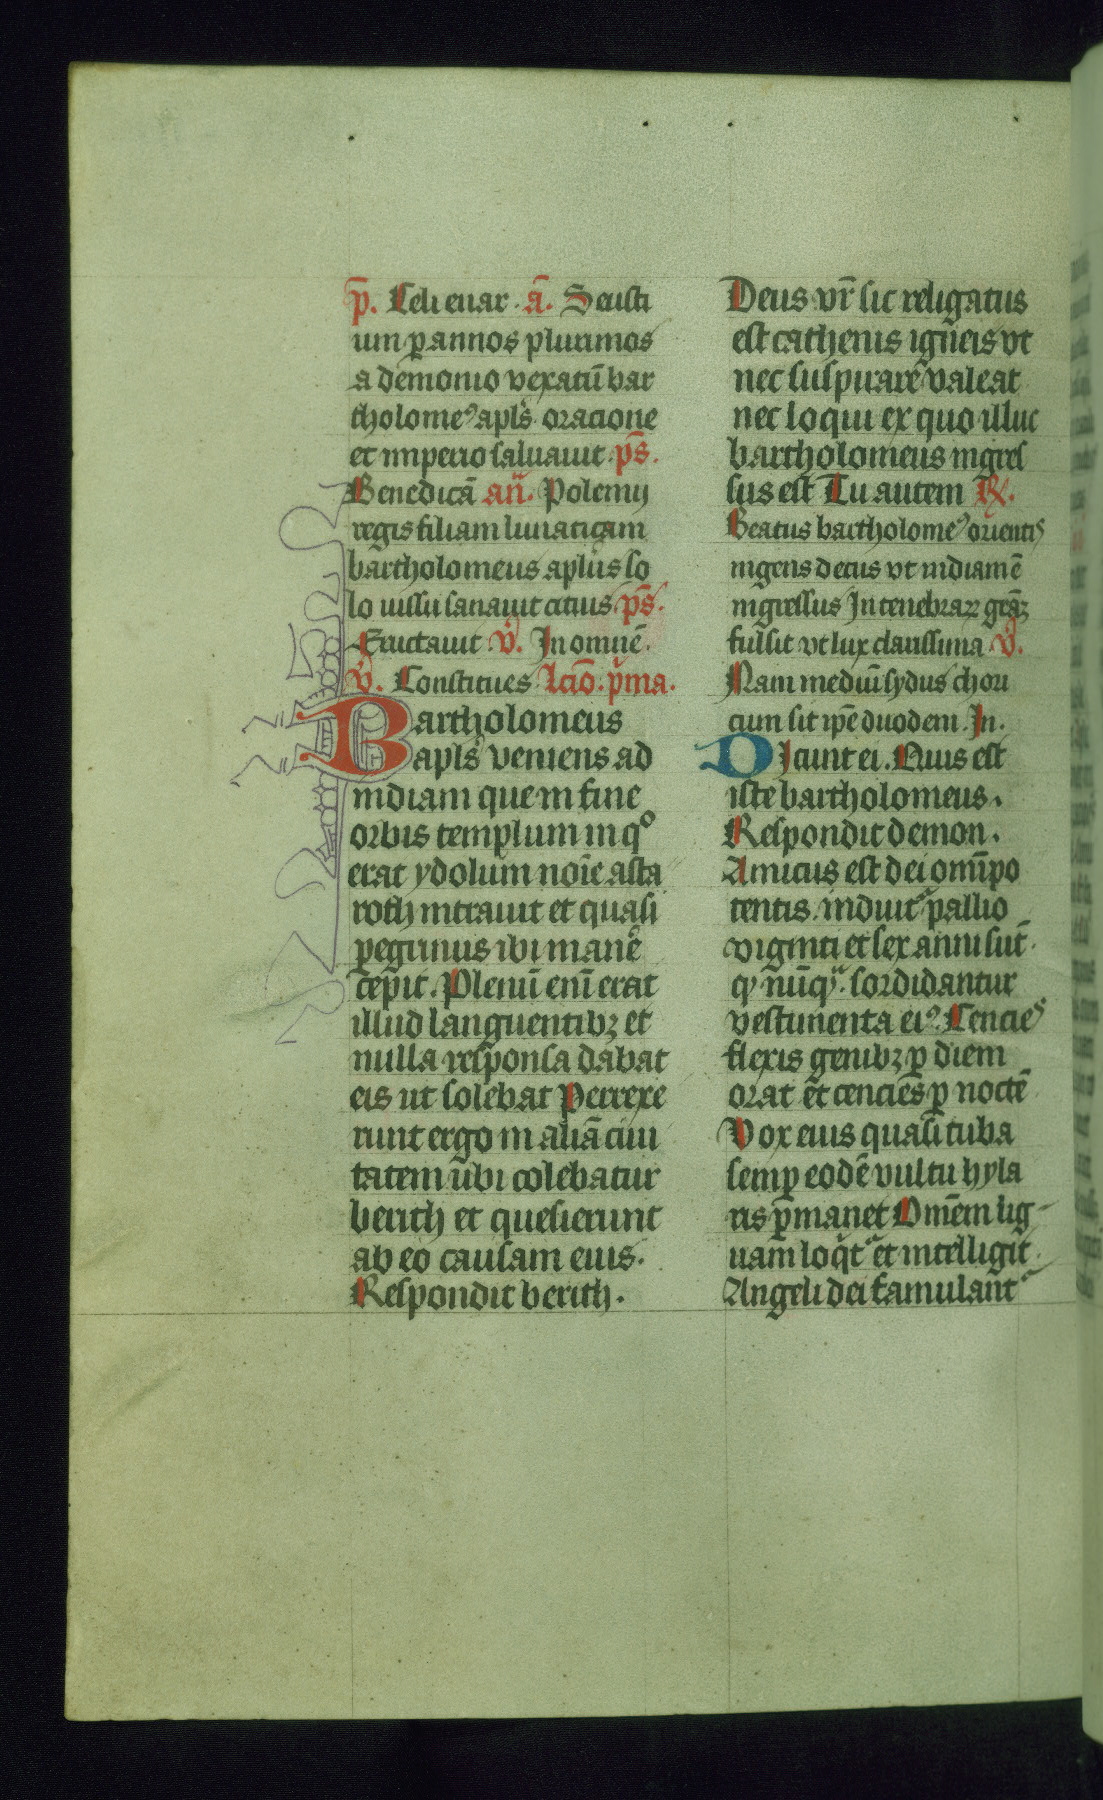 p̄. Celi enar. ā. Seusti
um ꝑ annos plurimos
a demonio vexatū bar
tholomeꝰ apl̄s oracione
et imperio saluauit. ps̄.
Benedicā an̄. Polemij
regis filiam lunaticam
bartholomeus apl̄us so
lo iussu sanauit citius. ps̄.
Eructauit v̄. In omnē.
v̄. Constitues. lc̄io. p̄ma.
Bartholomeus
apl̄s veniens ad
indiam que in fine
orbis templum in qͦ
erat ydolum noīe asta
roth intrauit et quasi
ꝑegrinus ibi manē
cepit. Plenū enī erat
illud languentibꝫ et
nulla responsa dabat
eis ut solebat Perrexe
runt ergo in aliā ciui
tatem ubi colebatur
berith et quesierunt
ab eo causam eius.
Respondit berith.
Deus vr̄ sic religatus
est cathenis igneis vt
nec suspirare valeat
nec loqui ex quo illuc
bartholomeus ingres
sus est Tu autem ℟.
Beatus bartholomeꝰ orientis
ingens decus vt indiam ē
ingressus In tenebraꝝ
fulsit vt lux clarissima v̄.
Nam mediū sydus chori
cum sit ip̄e duodeni. In.
Dicunt ei. Quis est
iste bartholomeus.
Respondit demon.
Amicus est dei om̄ipo
tentis. induit᷑ pallio
viginti et sex anni sūt.
qͥ nūqͣ. sordidantur
vestimenta eiꝰ. Cencies
flexis genibꝫ ꝑ diem
orat et cencies ꝑ noctē
Vox eius quasi tuba
semꝑ eodē vultu hyla
ris ꝑmanet Om̄em lig
uam loqͥt᷑ et intelligit.
Angeli dei famulant᷑